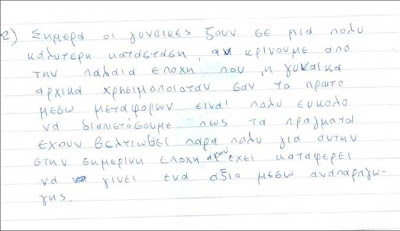 2) Σημερα οι γυναικες ζουν σε μια πολυ
καλυτερη κατασταση, αν κρινουμε απο
την παλαια εποχη που η γυναικα
αρχικα χρησιμοποιοταν σαν το πρωτο
μεσω μεταφορων ειναι πολυ ευκολο
να διαπιστοσουμε πως τα πραγματα
εχουν βελτιωθει παρα πολυ για αυτην
στην σημερινη εποχη αφου εχει καταφερει
να γινει ενα αξιο μεσω αναπαραγω-
γης.